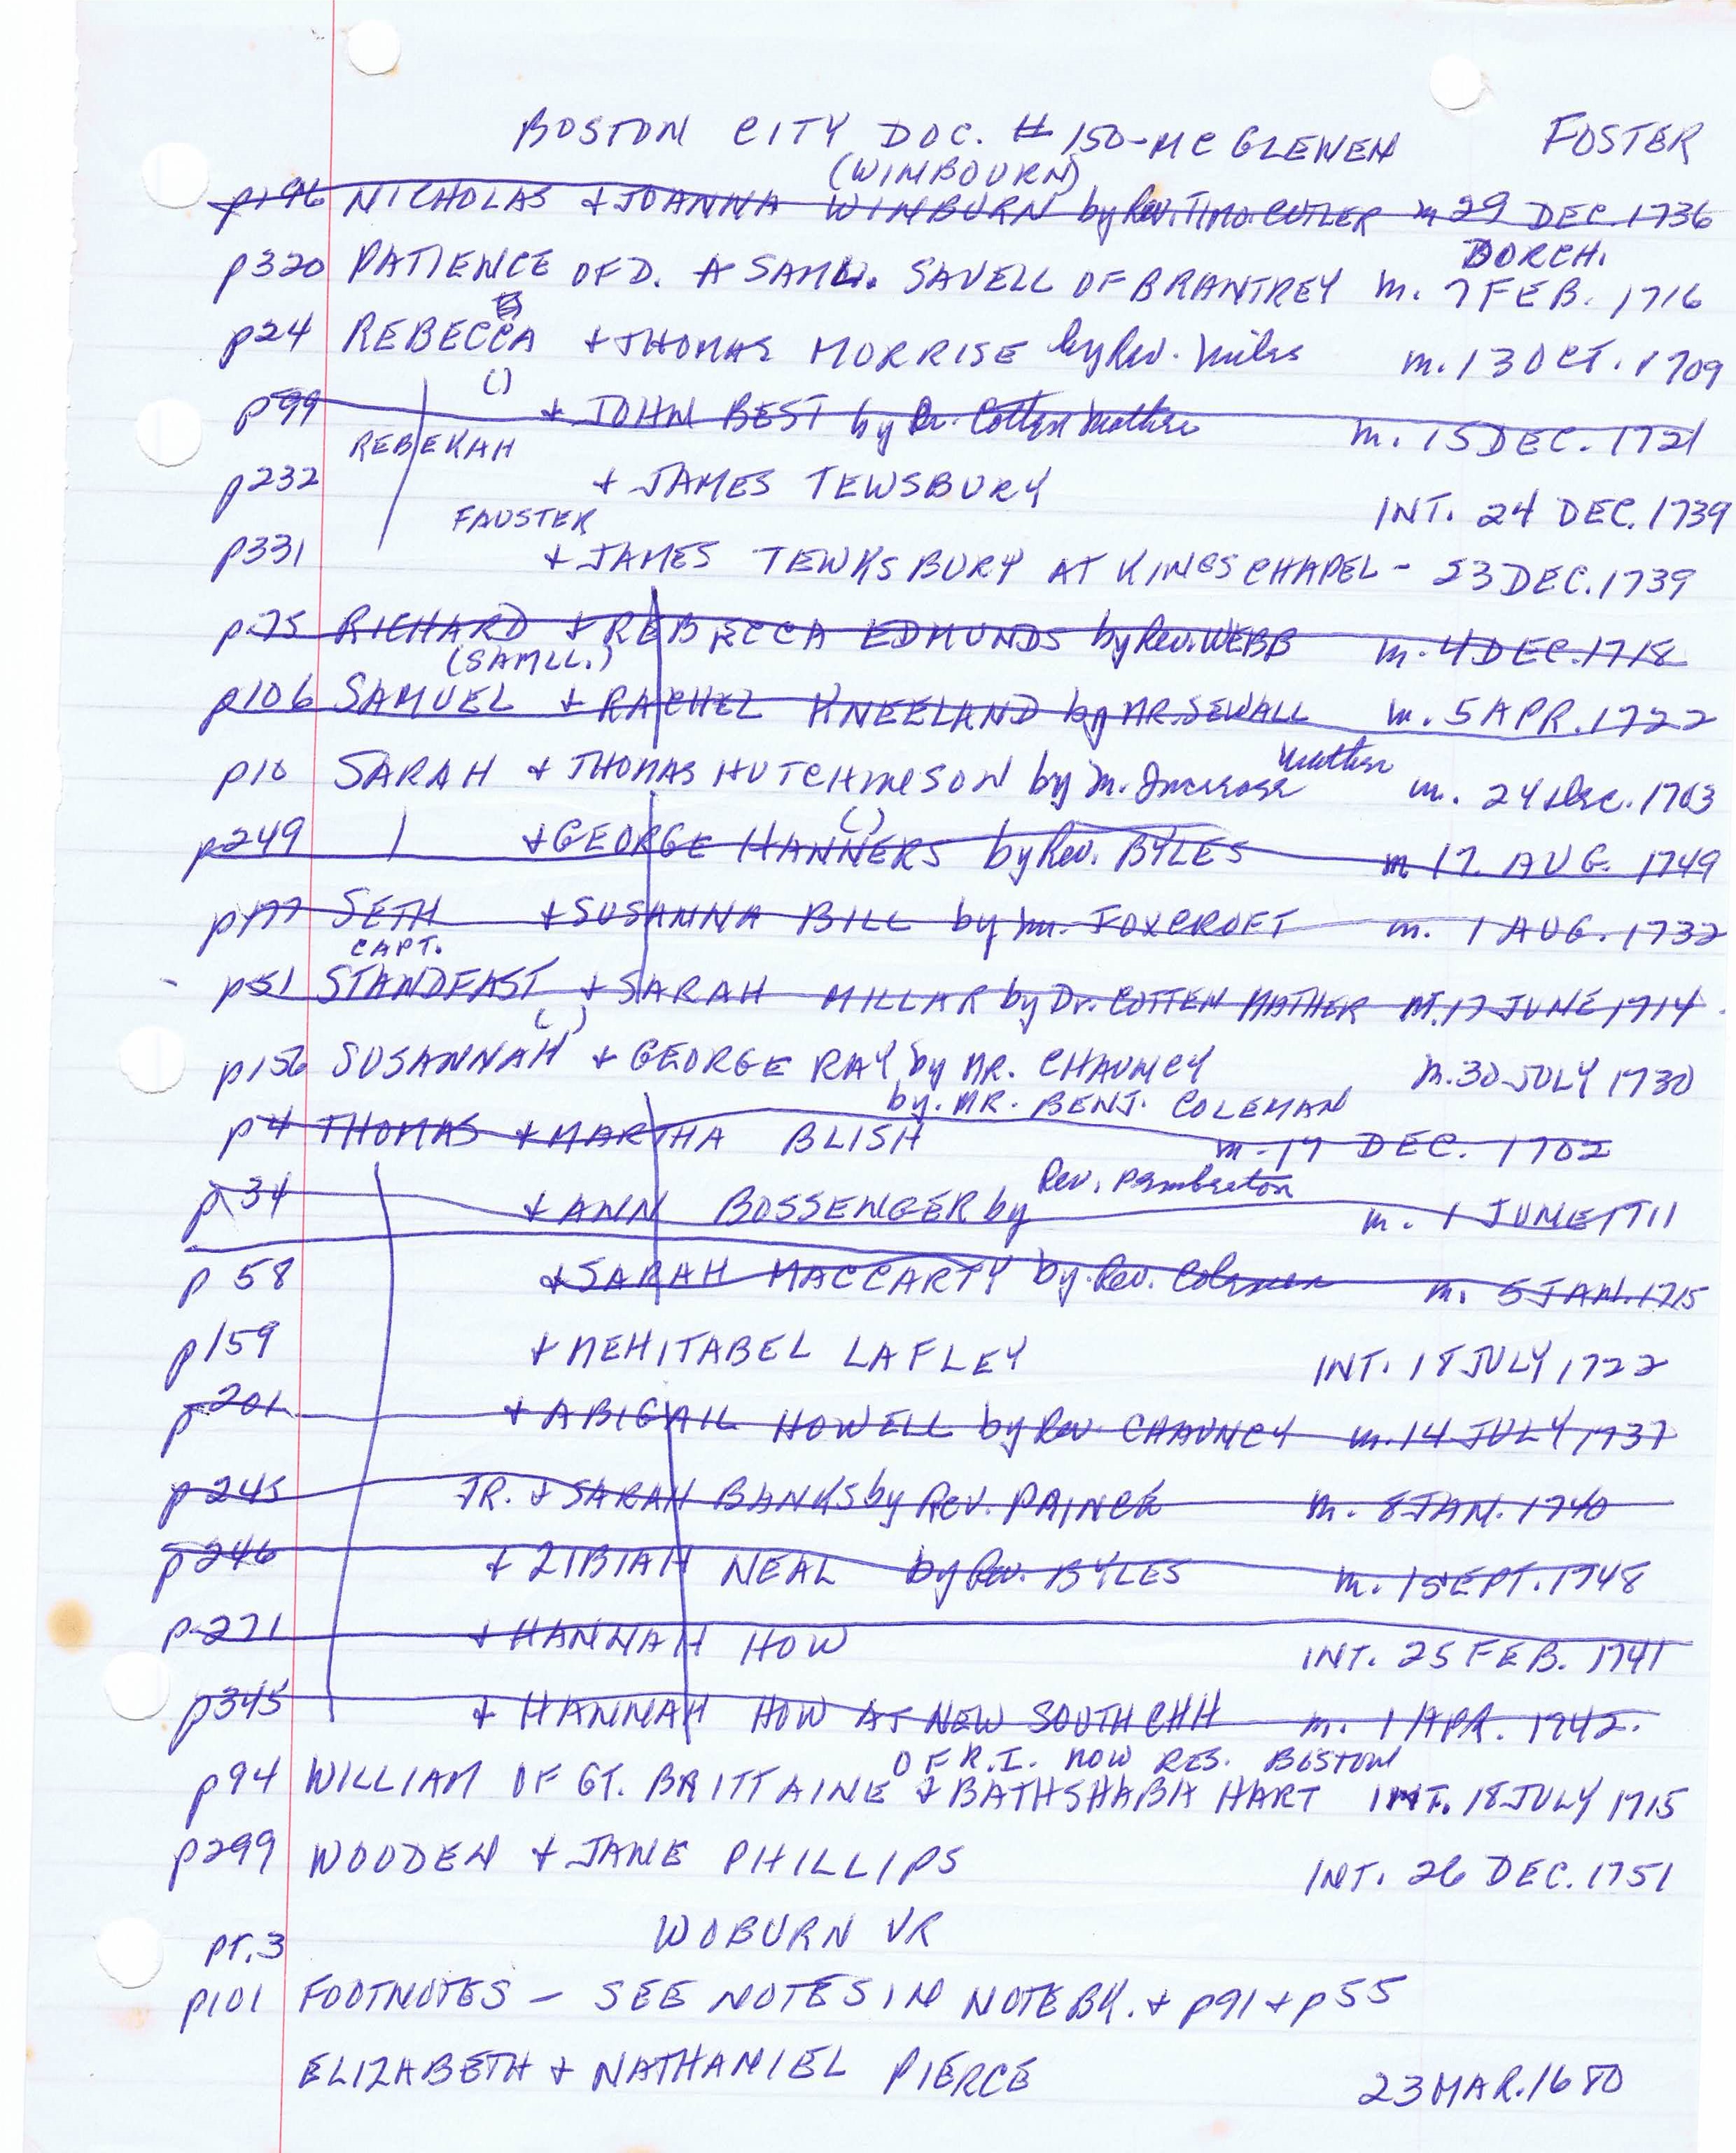 BOSTON CITY DOC. # 150-MC GLENEN FOSTER
(WIMBOURN)
p196 NICHOLAS + JOANNA WINBURN by Rev. TIMO. CUTLER m 29 DEC. 1736
DORCH.
p320 PATIENCE OF D. + SAML. SAVELL OF BRANTREY m. 7 FEB. 1716
p24 REBECCA + THOMAS MORRISE by Rev. Miles m. 13 OCT. 1709
()
p99 + JOHN BEST by Dr. Cotten Mather m. 15 DEC. 1721
REBEKAH
p232 + JAMES TEWSBURY INT. 24 DEC. 1739
FAUSTER
p331 + JAMES TEWKSBURY AT KINGS CHAPEL - 23 DEC. 1739
p75 RICHARD + REBECCA EDMUNDS by Rev. WEBB m. 4 DEC. 1718
(SAMLL.)
p106 SAMUEL + RACHEL KNEELAND by MR. SEWALL m. 5 APR. 1722
p10 SARAH + THOMAS HUTCHINSON by M. Increase Mather m. 24 Dec. 1703
()
p249 + GEORGE HANNERS by Rev. BYLES m 17 AUG. 1749
p177 SETH + SUSANNA BILL by Mr. FOXCROFT m. 1 AUG. 1732
CAPT.
p51 STANDFAST + SARAH MILLAR by Dr. COTTEN MATHER M. 17 JUNE 1714
( )
p156 SUSANNAH + GEORGE RAY by MR. CHAUNCY m. 30 JULY 1730
by. MR. BENJ. COLEMAN
p4 THOMAS + MARTHA BLISH m. 17 DEC. 1702
p34 + ANN BOSSENGER by Rev. Pembreton m. 1 JUNE 1711
p58 + SARAH MACCARTY by Rev. Colemen m. 5 JAN. 1715
p159 + MEHITABEL LAFLEY INT. 18 JULY 1722
p201 + ABIGAIL HOWELL by Rev. CHAUNCY m. 14 JULY 1737
p245 JR. + SARAH BANKS by Rev. PAINCE m. 8 JAN. 1740
p246 + ZIBIAH NEAL by Rev. BYLES m. 1 SEPT. 1748
p271 + HANNAH HOW INT. 25 FEB. 1741
p345 + HANNAH HOW AT NEW SOUTH CHH m. 1 APR. 1742.
OF R.I. NOW RES. BOSTON
p94 WILLIAM OF GT. BRITTAINE + BATHSHABA HART INT. 18 JULY 1715
p299 WOODEN + JANE PHILLIPS INT. 26 DEC. 1751
WOBURN VR
PT.3
p101 FOOTNOTES - SEE NOTES IN NOTE BK. + p91 + p55
ELIZABETH + NATHANIEL PIERCE 23 MAR. 1680